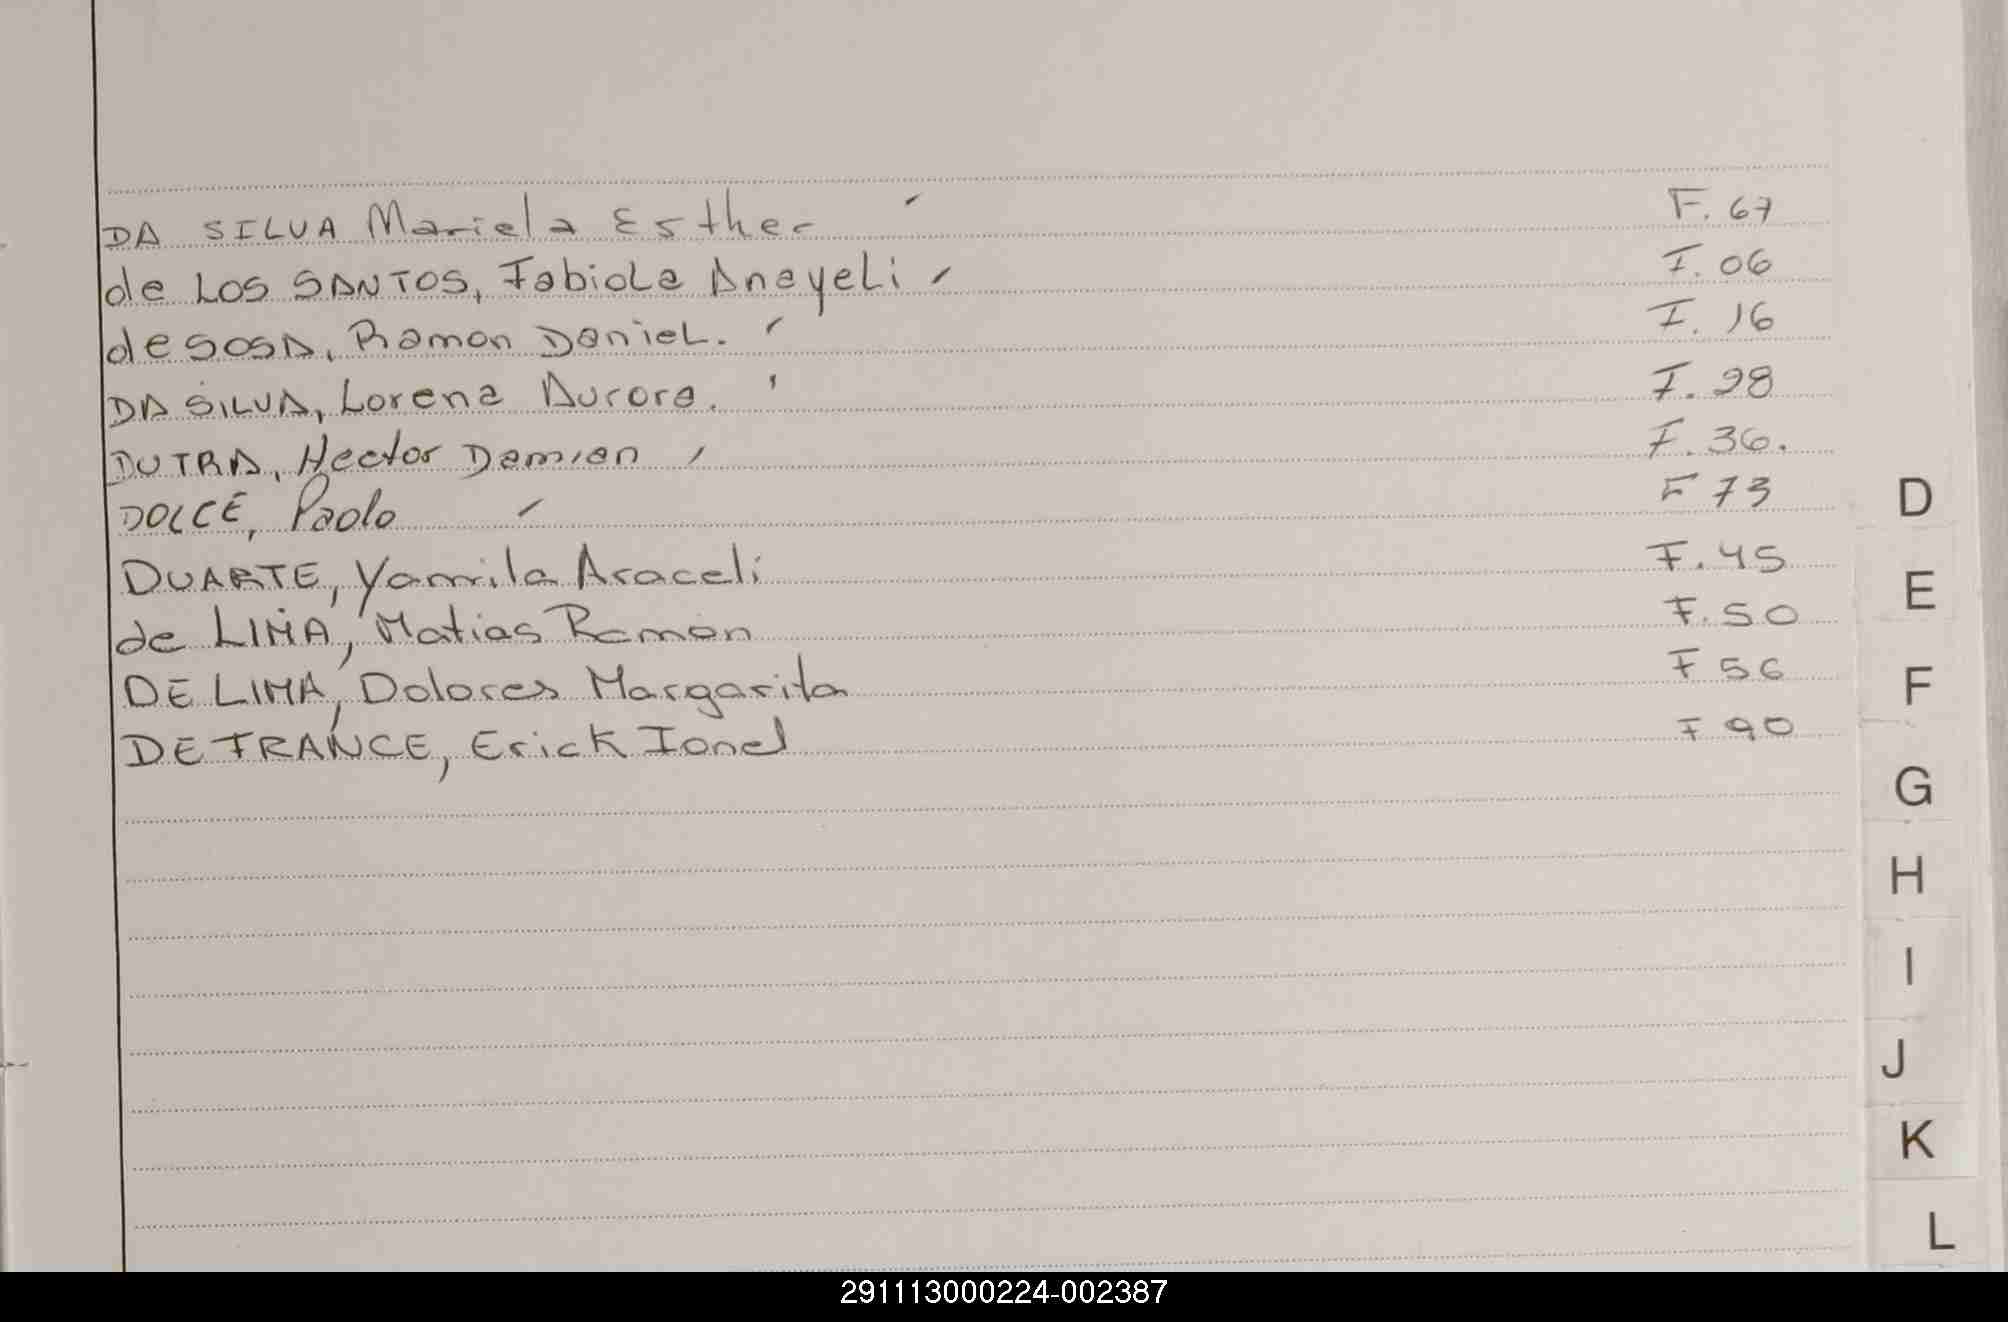 DA SILVA Mariela Esther F. 67
de LOS SANTOS, Fabiola Anayeli F. 06
de SOSA, Ramon Daniel. F. 16
DA SILVA, Lorena Aurora. F. 28
DUTRA, Hector Damian F. 36.
DOLCE, Paolo F 73
DUARTE, Yamila Araceli F. 45
de LIMA, Matias Ramon F. 50
DE LIMA, Dolores Margarita F 56
DE FRANCE, Erick Ionel F 90
D
E
F
G
H
I
J
K
L
291113000224-002387